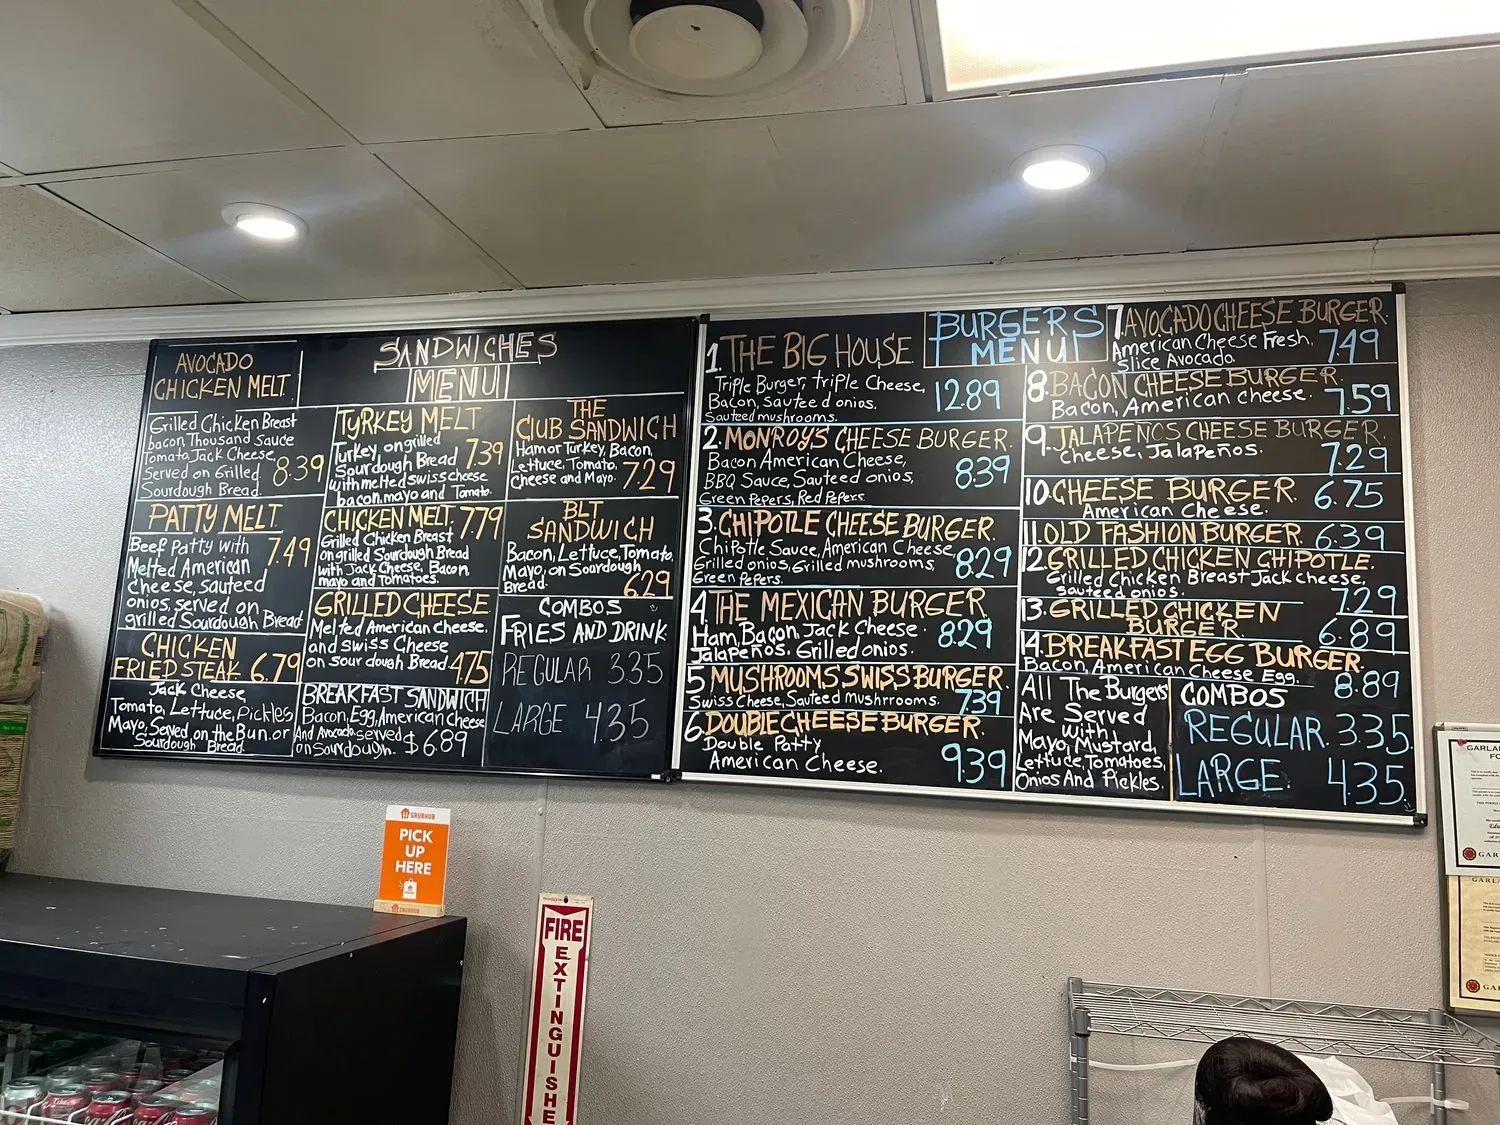 SANDWICHES
MENU
AVOCADO
CHICKEN MELT
Grilled Chicken Breast
bacon, Thousand Sauce
Tomato, Jack Cheese,
Served on Grilled
Sourdough Bread.
8.39
PATTY MELT
Beef Patty with
Melted American
Cheese, sauteed
onios, served on
grilled Sourdough Bread
7.49
CHICKEN
FRIED STEAK 6.79
Jack Cheese
Tomato, Lettuce, Pickles
Mayo, Served, on the Bun. or
Sourdough Bread.
TURKEY MELT
Turkey, on grilled
Sourdough Bread
with melted swiss cheese
bacon, mayo and Tomato.
7.39
CHICKEN MELT 7.79
Grilled Chicken Breast
on grilled Sourdough Bread
with Jack Cheese, Bacon,
mayo and Tomatoes.
GRILLED CHEESE
Melted American Cheese.
and swiss Cheese
on sour dough Bread 4.75
BREAKFAST SANDWICH
Bacon, Egg, American Cheese
And Avocado, served
on Sourdough. $ 6.89
THE
CLUB SANDWICH
Ham or Turkey, Bacon,
Lettuce, Tomato,
Cheese and Mayo. 7.29
BLT
SANDWICH
Bacon, Lettuce, Tomato,
Mayo, on Sourdough
Bread. 6.29
COMBOS
FRIES AND DRINK
REGULAR 3.35
LARGE 4.35
BURGERS
MENU
1. THE BIG HOUSE
Triple Burger, triple Cheese,
Bacon, sauteed onios.
Sauteed mushrooms.
12.89
2. MONROY'S CHEESE BURGER.
Bacon American Cheese,
BBQ Sauce, Sauteed onios,
Green Pepers, Red Pepers.
8.39
3. CHIPOTLE CHEESE BURGER.
Chipotle Sauce, American Cheese
Grilled onios, Grilled mushrooms,
Green Pepers.
8.29
4. THE MEXICAN BURGER
Ham, Bacon, Jack Cheese.
Jalapeños, Grilled onios.
8.29
5. MUSHROOMS SWISS BURGER.
Swiss Cheese, Sauteed mushrrooms.
7.39
6. DOUBLE CHEESE BURGER.
Double Patty
American Cheese.
9.39
7. AVOCADO CHEESE BURGER.
American Cheese Fresh,
Slice Avocado.
7.49
8. BACON CHEESE BURGER.
Bacon, American cheese.
7.59
9. JALAPEÑOS CHEESE BURGER.
cheese, Jalapeños.
7.29
10. CHEESE BURGER. 6.75
American Cheese.
11. OLD FASHION BURGER. 6.39
12. GRILLED CHICKEN CHIPOTLE.
Grilled Chicken Breast Jack cheese,
sauteed onios.
7.29
13. GRILLED CHICKEN
BURGER. 6.89
14. BREAKFAST EGG BURGER.
Bacon, American Cheese Egg.
8.89
All The Burgers
Are Served
with
Mayo, Mustard,
Lettuce, Tomatoes,
Onios And Pickles.
COMBOS
REGULAR. 3.35
LARGE. 4.35
GRUBHUB
PICK
UP
HERE
GRUBHUB
FIRE
EXTINGUISHE